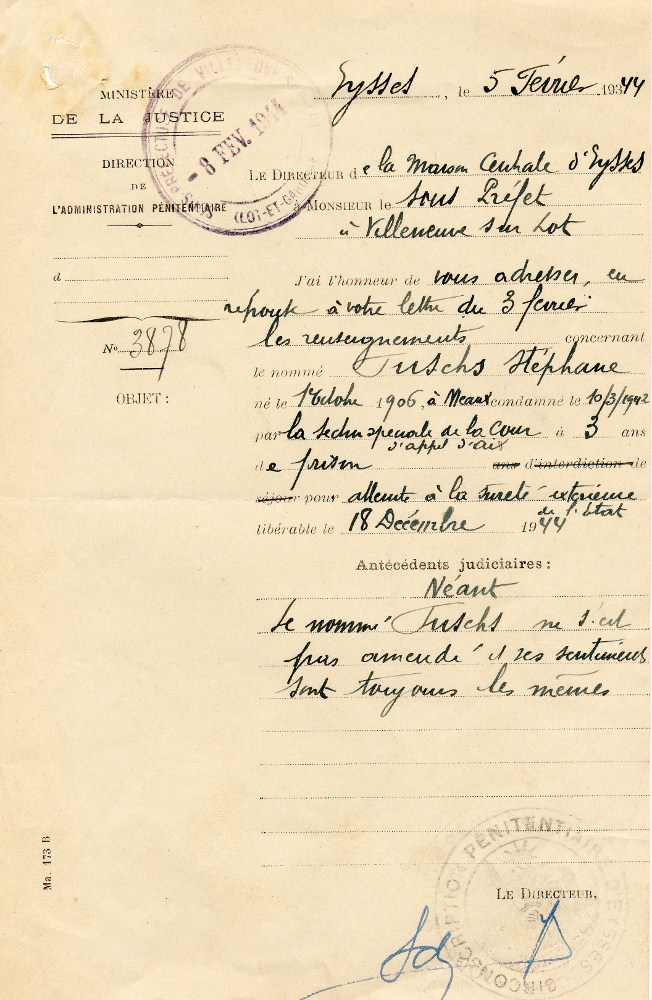 MINISTÈRE
DE LA JUSTICE
DIRECTION
DE
L'ADMINISTRATION PÉNITENTIAIRE
d
No 3878
OBJET :
PRÉFECTURE DE VILLENEUVE S
SOUS
(LOT-ET-GARONNE)
- 8 FEV. 1944
Eysses, le 5 Février 19344
LE DIRECTEUR de la Maison Centrale d'Eysses
à MONSIEUR le Sous Préfet
à Villeneuve sur Lot
J'ai l'honneur de vous adresser, en
réponse à votre lettre du 3 février
les renseignements concernant
le nommé Fuschs Stéphane
né le 1er Octobre 1906, à Meaux condamné le 10/3/1942
par la section spéciale de la Cour à 3 ans
d'appel d'aix
de prison ans d'interdiction de
séjour pour atteinte à la sureté extérieure
de l'Etat
libérable le 18 Décembre 1944
Antécédents judiciaires :
Néant
Le nommé Fuschs ne s'est
pas amendé et ses sentiments
sont toujours les mêmes
LE DIRECTEUR,
CIRCONSCRIPTION PÉNITENTIAIRE D'EYSSES
Ma. 173 B